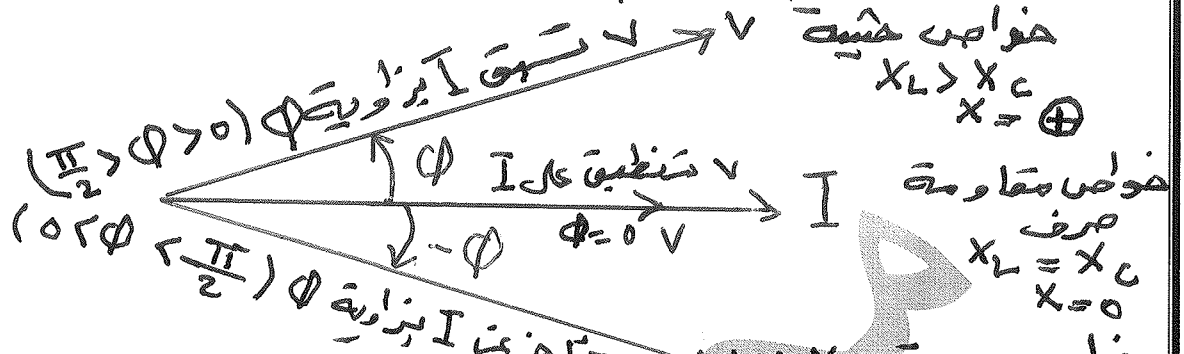 V
خواص حثية
X_L > X_C
X = ⊕
V تسبق I بزاوية Φ (π/2 > Φ > 0)
Φ
V تنطبق على I
I
Φ = 0 V
خواص مقاومة
صرف
X_L = X_C
X = 0
-Φ
I بزاوية Φ (π/2 > Φ > 0)